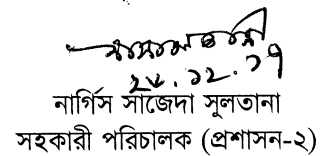 ২৮.১২.১৭
নার্গিস সাজেদা সুলতানা
সহকারী পরিচালক (প্রশাসন-২)